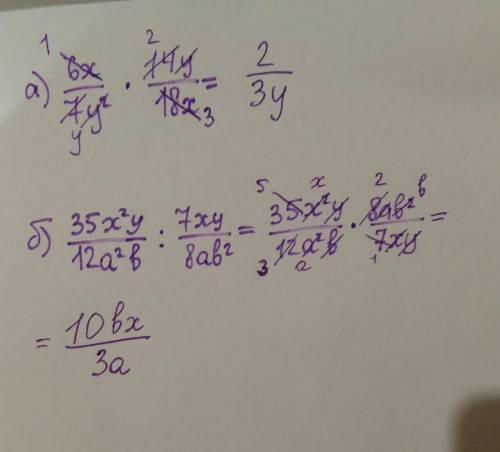 а) 6x/7y² · 14y/18x = 2/3y
б) 35x²y/12a²b : 7xy/8ab² = 35x²y/12a²b · 8ab²/7xy =
= 10bx/3a